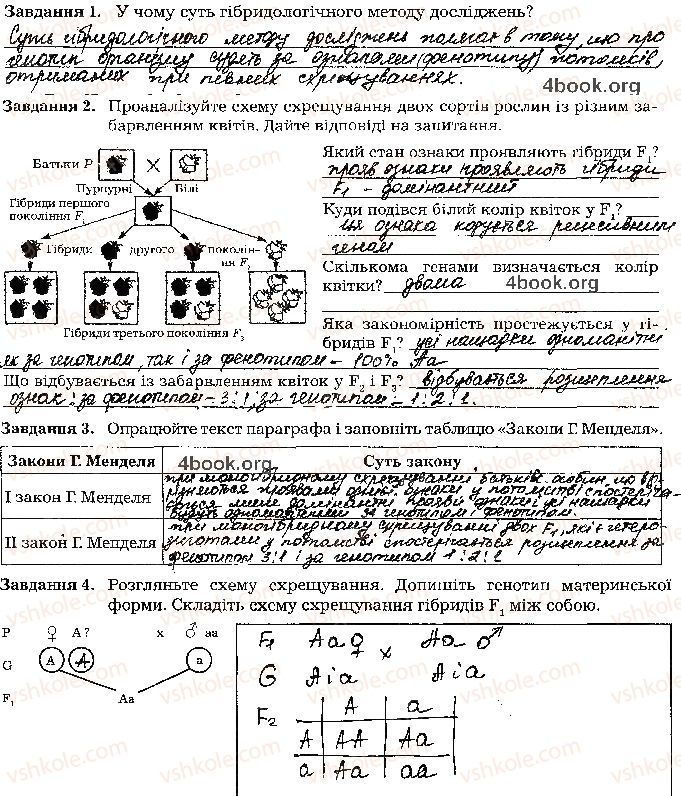 Завдання 1. У чому суть гібридологічного методу досліджень?
Суть гібридологічного методу досліджень полягає в тому, що про
генотип організму судять за ознаками (фенотипу) потомків,
отриманих при певних схрещуваннях.
4book.org
Завдання 2. Проаналізуйте схему схрещування двох сортів рослин із різним за-
барвленням квітів. Дайте відповіді на запитання.
Батьки P
Пурпурні Білі
Гібриди першого
покоління F₁
Гібриди другого поколін-
ня F₂
Гібриди третього покоління F₃
Який стан ознаки проявляють гібриди F₁?
прояв ознаки проявляють гібриди
F₁ - домінантний
Куди подівся білий колір квіток у F₁?
ця ознака керується рецесивним
геном
Скількома генами визначається колір
квітки? двома 4book.org
Яка закономірність простежується у гі-
бридів F₁? усі нащадки одноманітні
як за генотипом, так і за фенотипом - 100% Aa
Що відбувається із забарвленням квіток у F₂ і F₃? відбувається розщеплення
ознак: за фенотипом - 3:1, за генотипом - 1:2:1.
Завдання 3. Опрацюйте текст параграфа і заповніть таблицю «Закони Г. Менделя».
Закони Г. Менделя 4book.org Суть закону
I закон Г. Менделя
при моногібридному схрещуванні батьків. особин, що
проявами однієї ознаки у потомстві
лише домінантні прояви ознаки і усі нащадки
за генотипом і фенотипом.
II закон Г. Менделя
при моногібридному схрещуванні двох F₁, які є гетеро-
зиготами у потомстві спостерігається розщеплення за
фенотипом 3:1 і за генотипом 1:2:1
Завдання 4. Розгляньте схему схрещування. Допишіть генотип материнської
форми. Складіть схему схрещування гібридів F₁ між собою.
P ♀ A? x ♂ aa
G A A a
F₁ Aa
F₁ Aa ♀ x Aa ♂
G A i a A i a
F₂ A a
A AA Aa
a Aa aa
vshkole.com